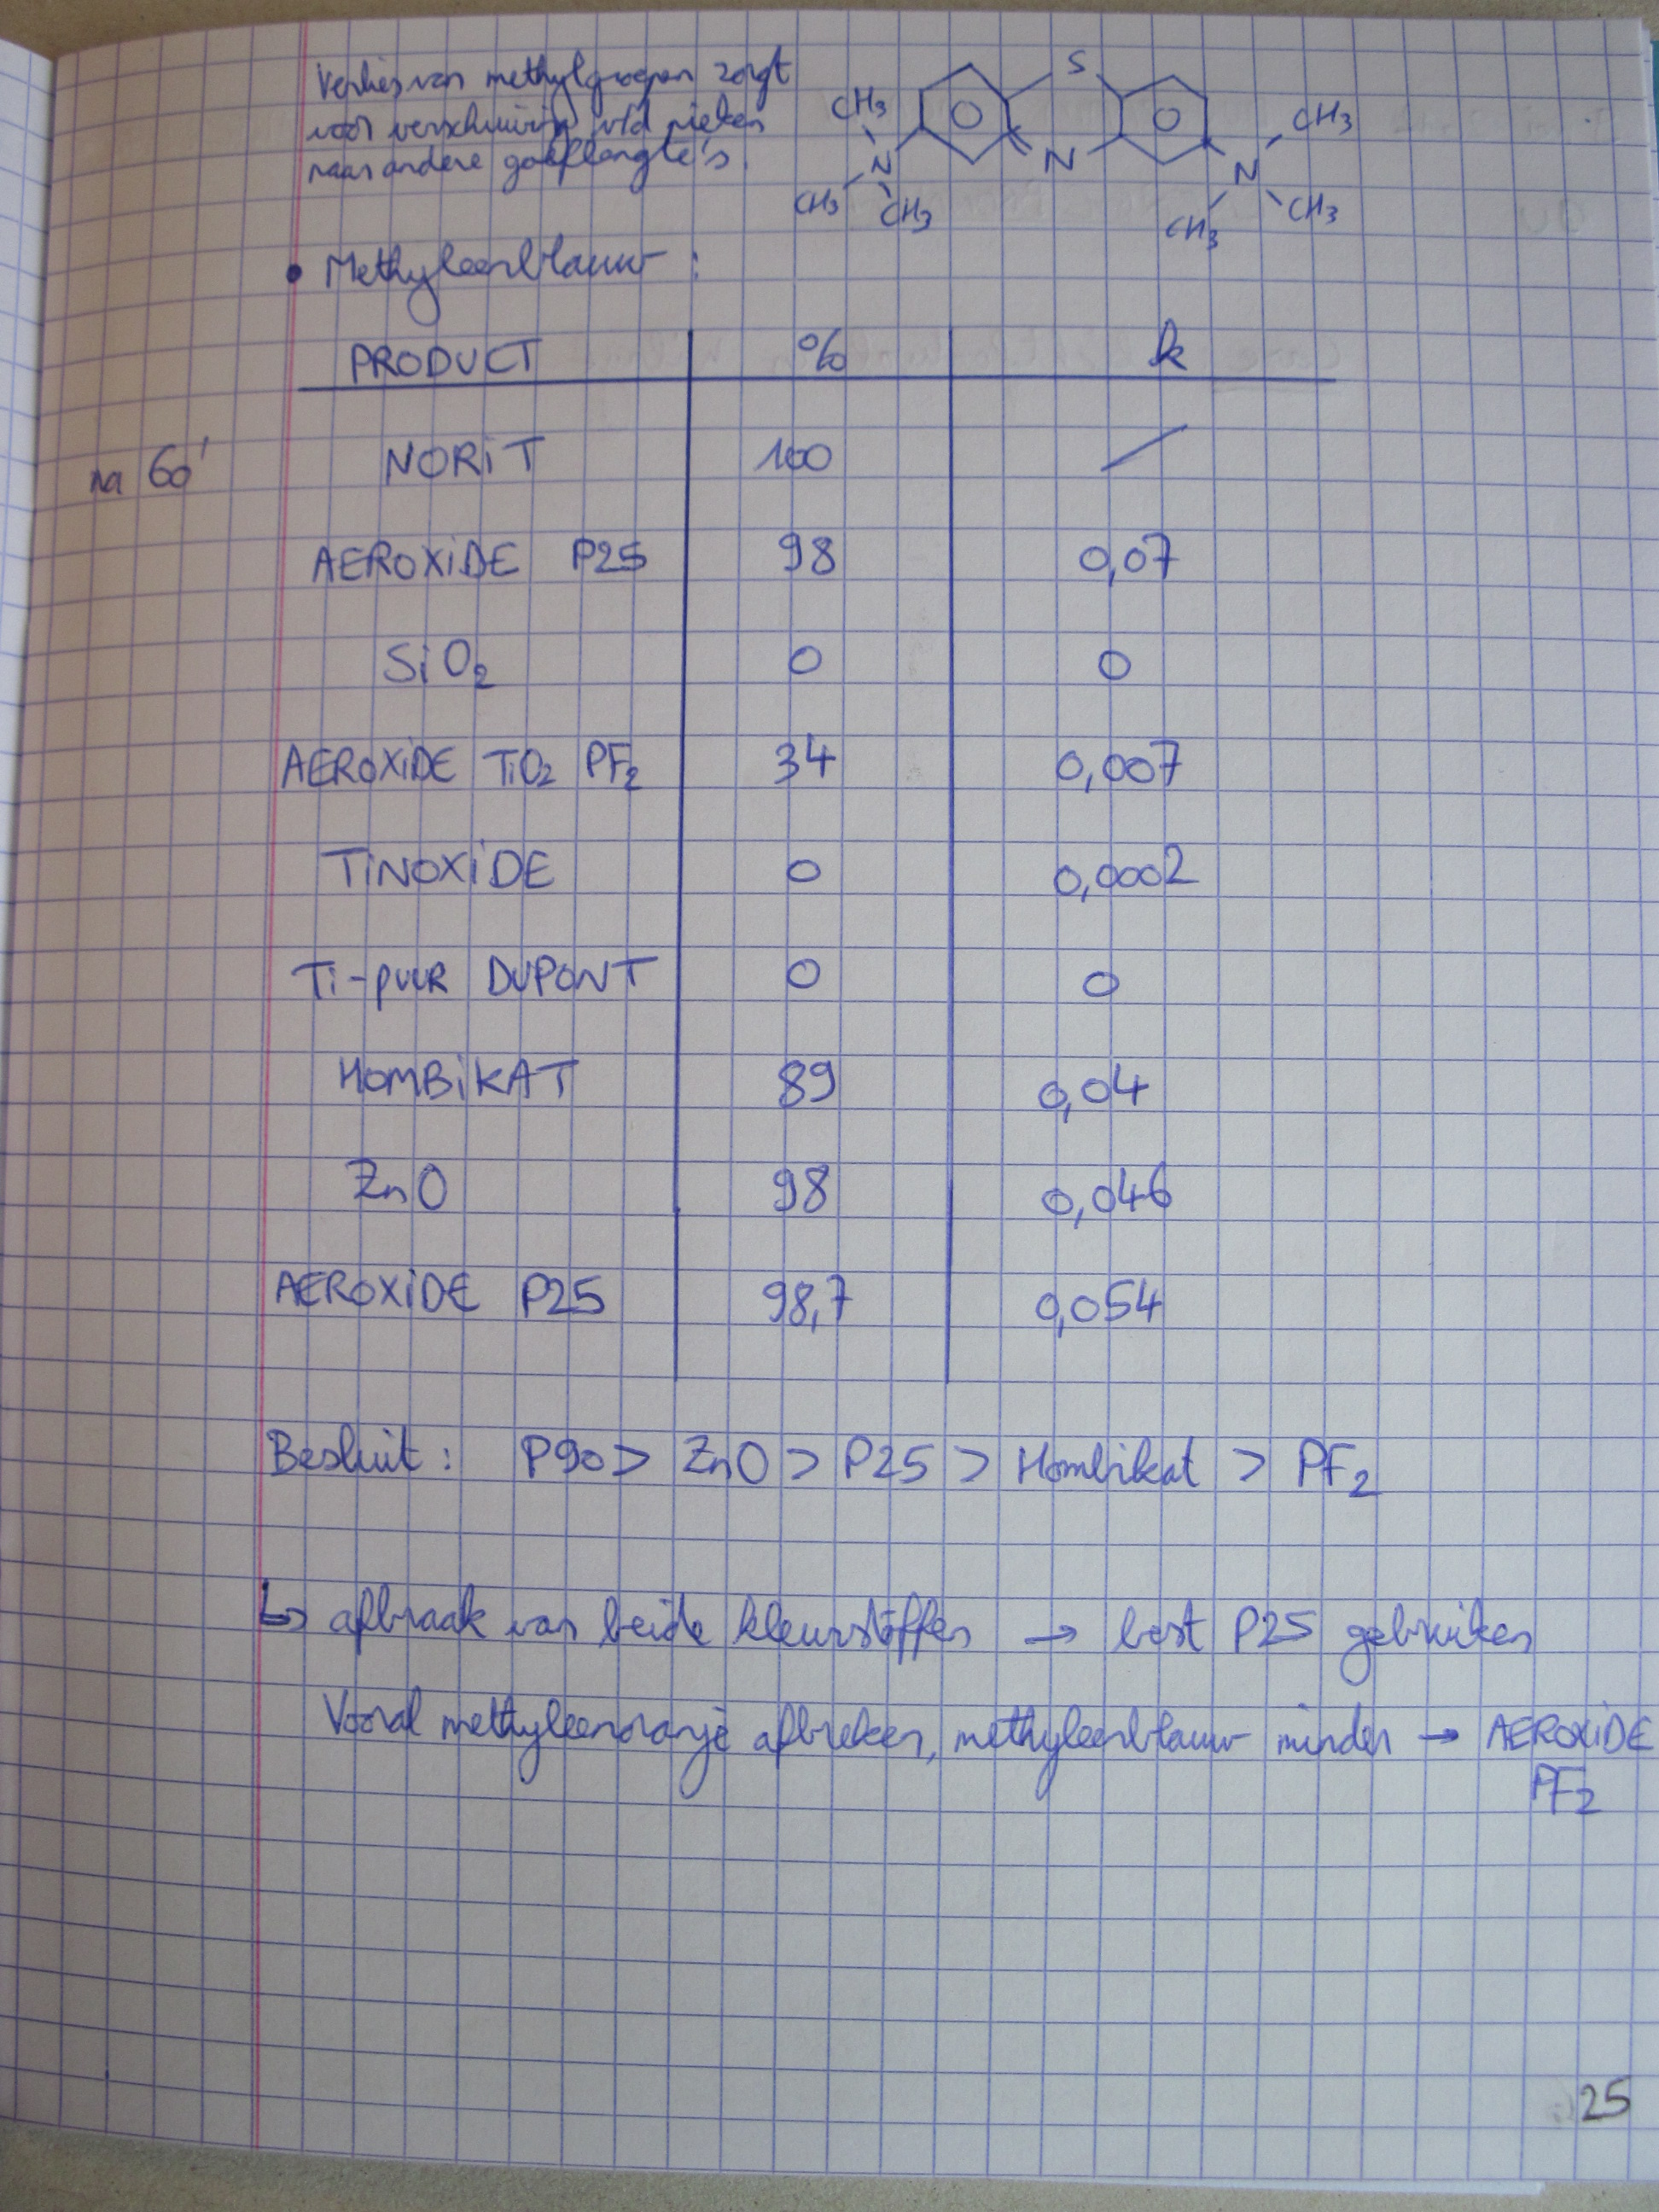 Verlies van methylgroepen zorgt
voor verschuiving v/d pieken
naar andere golflengte's.
S
CH3
CH3
N
N
N
CH3
CH3
CH3
CH3
• Methyleenblauw :
PRODUCT % k
na 60' NORiT 100 /
AEROXiDE P25 98 0,07
SiO2 0 0
AEROXiDE TiO2 PF2 34 0,007
TiNOXiDE 0 0,0002
Ti-puur DUPONT 0 0
HOMBiKAT 89 0,04
ZnO 98 0,046
AEROXiDE P25 98,7 0,054
Besluit : P90 > ZnO > P25 > Hombikat > PF2
↳ afbraak van beide kleurstoffen → best P25 gebruiken
Vooral methyleenoranje afbreken, methyleenblauw minder → AEROXiDE
PF2
25